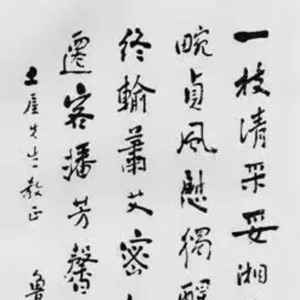 一枝清采妥湘
畹貞風慰獨醒
终輸蕭艾密
遷客播芳馨
土屋先生教正
魯